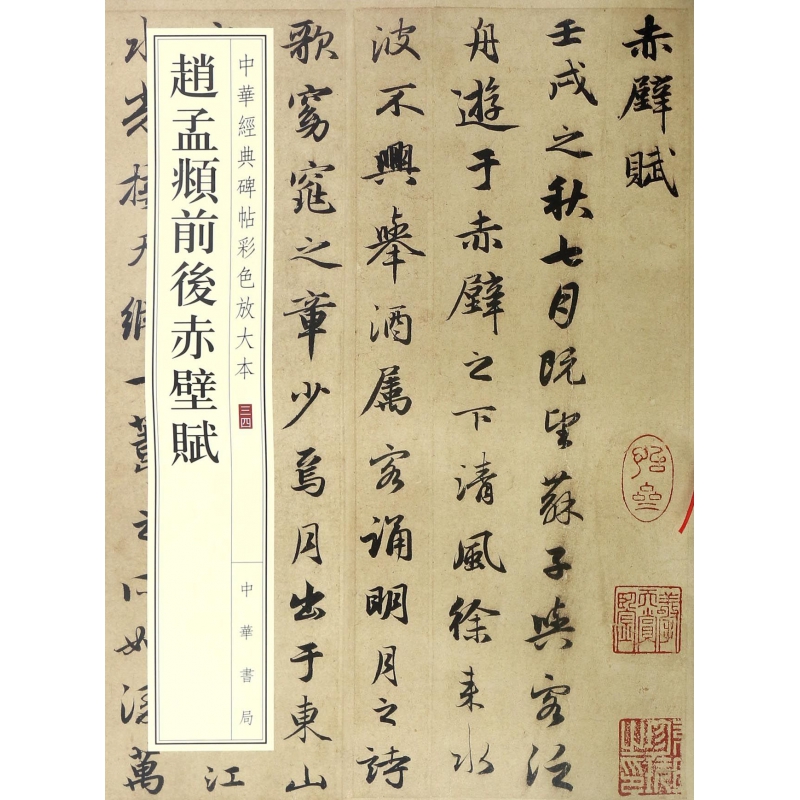 赤壁賦
壬戌之秋七月既望蘇子與客泛
舟遊于赤壁之下清風徐来水
波不興舉酒属客誦明月之詩
歌窈窕之章少焉月出于東山
江
水光接天縱一葦之所如凌萬
中華經典碑帖彩色放大本 三四
趙孟頫前後赤壁賦
中華書局